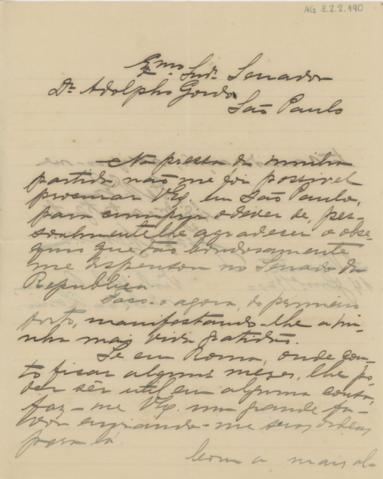 AG 2.2.2.190
Exmo. Snr. Senador
Dr. Adolpho Gordo
São Paulo
Na pressa da minha
partida não me foi possivel
procurar V. Ex. em São Paulo,
para cumprir o dever de, pes-
soalmente lhe agradecer o obse-
quio que tão bondosamente
me dispensou no Senado da
Republica.
Faço-o agora, do primeiro
porto, manifestando-lhe a mi-
nha mais viva gratidão.
Se em Roma, onde con-
to ficar alguns meses, lhe po-
der ser util em alguma cousa,
faz-me V. Ex. um grande fa-
vor enviando-me suas ordens
para lá.
Com a mais al-